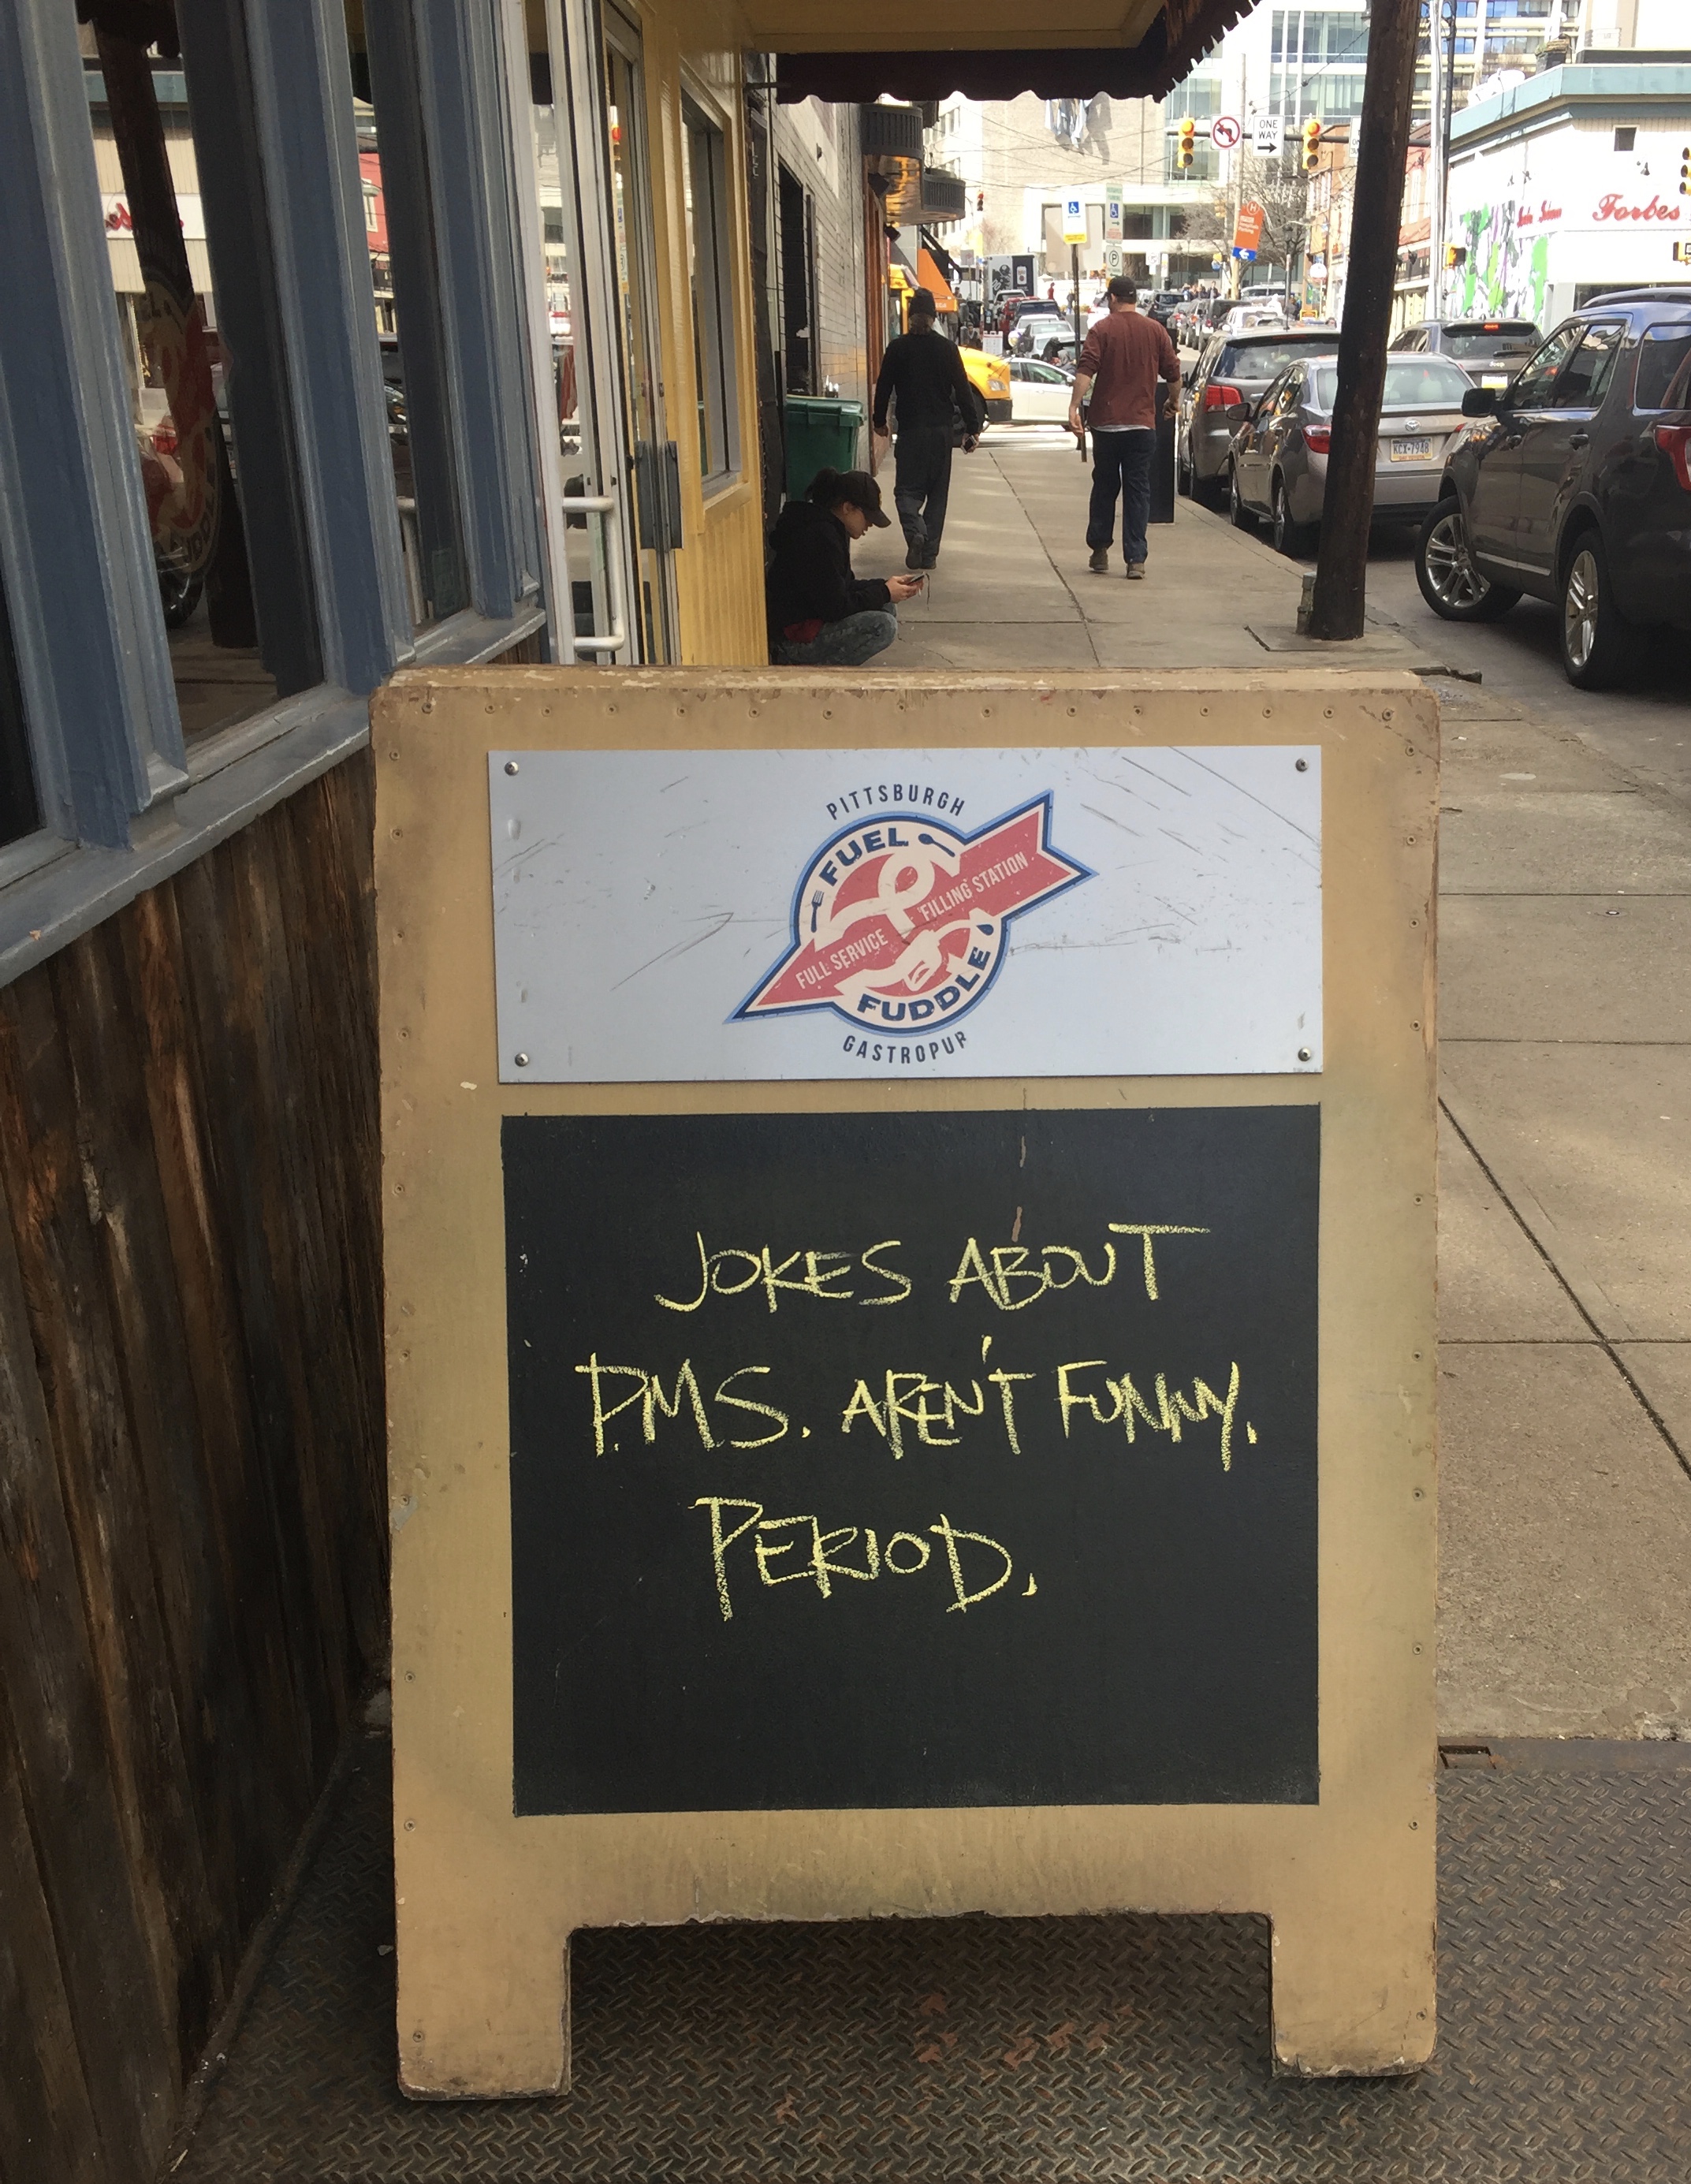 ONE
WAY
Forbes
KCX-7948
PITTSBURGH
FUEL
FULL SERVICE FILLING STATION
FUDDLE
GASTROPUB
JOKES ABOUT
P.M.S. AREN'T FUNNY.
PERIOD.